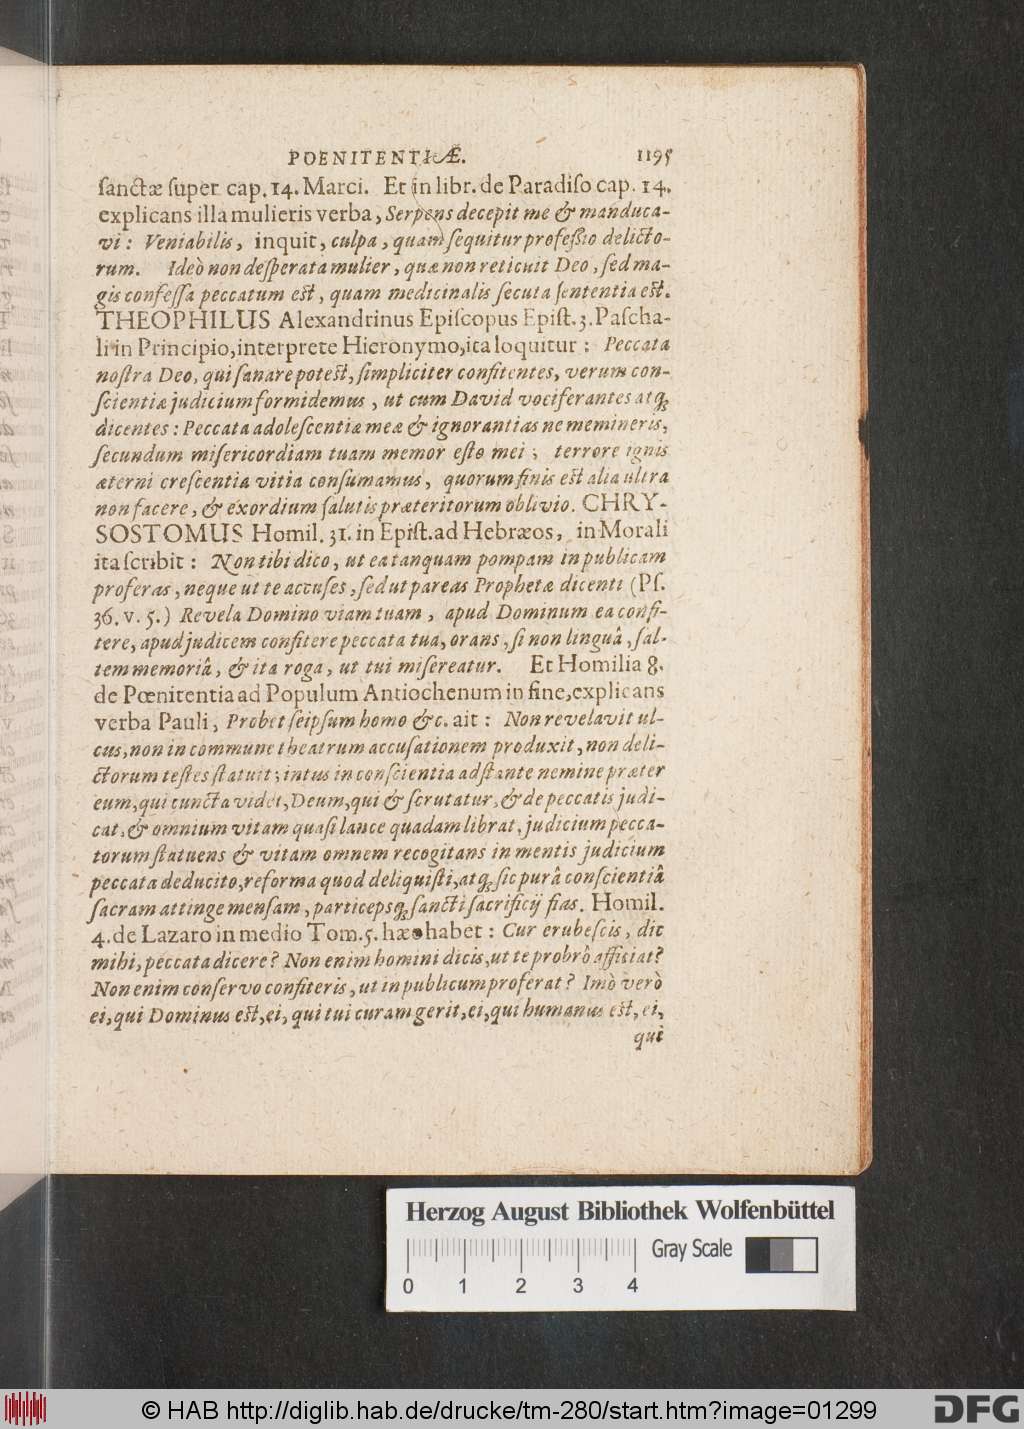 POENITENTIÆ. 1195
ſanctæ ſuper cap. 14. Marci. Et in libr. de Paradiſo cap. 14.
explicans illa mulieris verba, Serpens decepit me & manduca-
vi: Veniabilis, inquit, culpa, quam ſequitur profeſſio delicto-
rum. Ideò non deſperata mulier, quæ non reticuit Deo, ſed ma-
gis confeſſa peccatum eſt, quam medicinalis ſecuta ſententia eſt.
THEOPHILUS Alexandrinus Epiſcopus Epiſt. 3. Paſcha-
li in Principio, interprete Hieronymo, ita loquitur: Peccata
noſtra Deo, qui ſanare poteſt, ſimpliciter confitentes, verum con-
ſcientiæ judicium formidemus, ut cum David vociferantes atq;
dicentes: Peccata adoleſcentiæ meæ & ignorantias ne memineris,
ſecundum miſericordiam tuam memor eſto mei; terrore ignis
æterni creſcentia vitia conſumamus, quorum finis eſt alia ultra
non facere, & exordium ſalutis præteritorum oblivio. CHRY-
SOSTOMUS Homil. 31. in Epiſt. ad Hebræos, in Morali
ita ſcribit: Non tibi dico, ut ea tanquam pompam in publicam
proferas, neque ut te accuſes, ſed ut pareas Prophetæ dicenti (Pſ.
36. v. 5.) Revela Domino viam tuam, apud Dominum ea confi-
tere, apud judicem confitere peccata tua, orans, ſi non linguâ, ſal-
tem memoriâ, & ita roga, ut tui miſereatur. Et Homilia 8.
de Pœnitentia ad Populum Antiochenum in fine, explicans
verba Pauli, Probet ſeipſum homo &c. ait: Non revelavit ul-
cus, non in commune theatrum accuſationem produxit, non deli-
ctorum teſtes ſtatuit; intus in conſcientia adſtante nemine præter
eum, qui cuncta videt, Deum, qui & ſcrutatur, & de peccatis judi-
cat, & omnium vitam quaſi lance quadam librat, judicium pecca-
torum ſtatuens & vitam omnem recogitans in mentis judicium
peccata deducito, reforma quod deliquiſti, atq; ſic purâ conſcientiâ
ſacram attinge menſam, particepsq; ſancti ſacrificij fias. Homil.
4. de Lazaro in medio Tom. 5. hæc habet: Cur erubeſcis, dic
mihi, peccata dicere? Non enim homini dicis, ut te probrô afficiat?
Non enim conſervo confiteris, ut in publicum proferat? Imò verò
ei, qui Dominus eſt, ei, qui tui curam gerit, ei, qui humanus eſt, ei,
qui
Herzog August Bibliothek Wolfenbüttel
Gray Scale
0 1 2 3 4
© HAB http://diglib.hab.de/drucke/tm-280/start.htm?image=01299
DFG